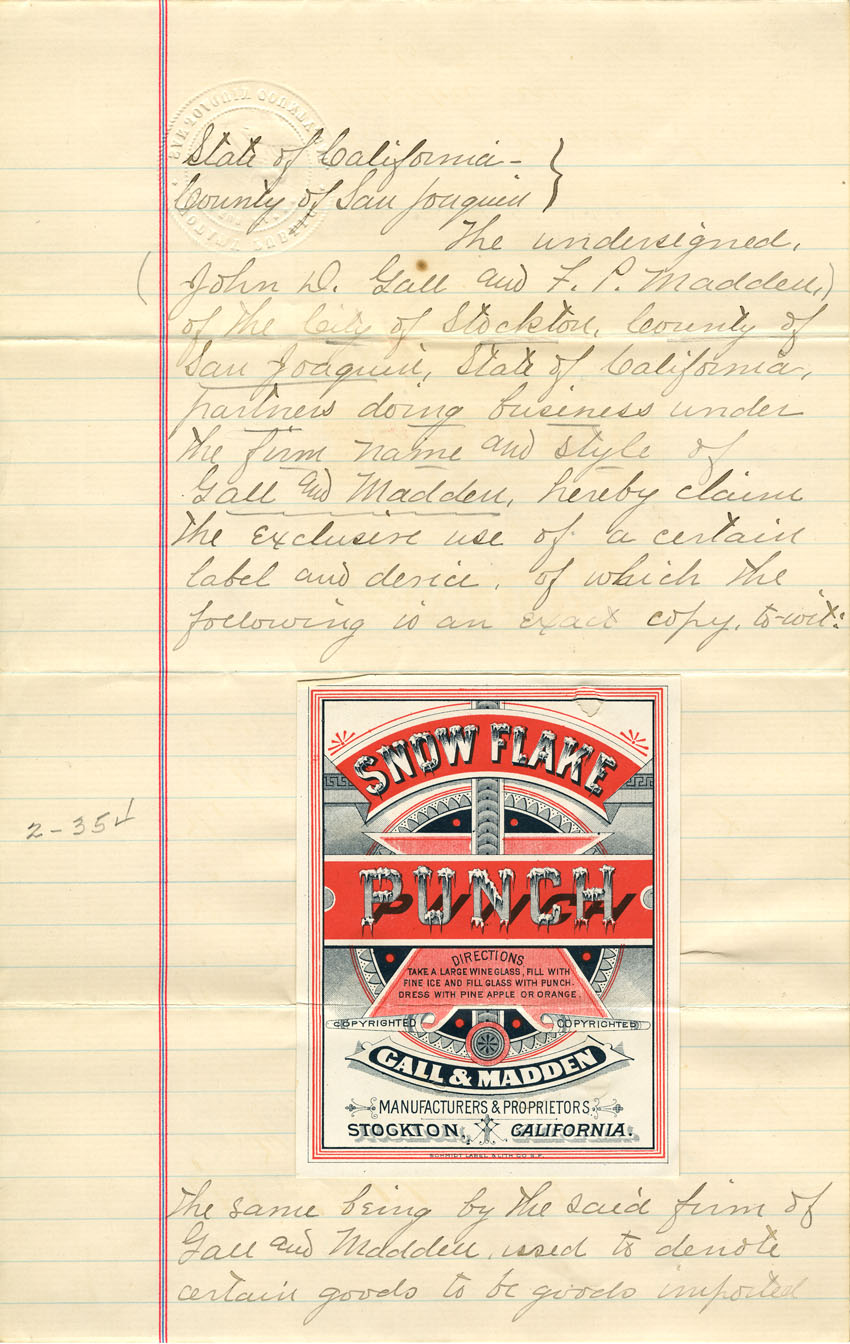 State of California -
County of San Joaquin }
The undersigned,
(John D. Gall and F. P. Madden,)
of the City of Stockton, County of
San Joaquin, State of California,
partners doing business under
the firm name and style of
Gall and Madden, hereby claim
the exclusive use of a certain
label and device, of which the
following is an exact copy, to-wit:
SNOW FLAKE
2-35
PUNCH
DIRECTIONS
TAKE A LARGE WINE GLASS, FILL WITH
FINE ICE AND FILL GLASS WITH PUNCH.
DRESS WITH PINE APPLE OR ORANGE.
COPYRIGHTED COPYRIGHTED
GALL & MADDEN
MANUFACTURERS & PROPRIETORS
STOCKTON, CALIFORNIA.
SCHMIDT LABEL & LITH CO S.F.
The same being by the said firm of
Gall and Madden, used to denote
certain goods to be goods imported